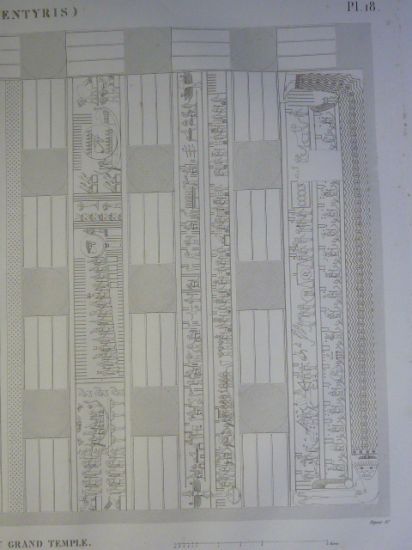 ENTYRIS)
Pl. 18.
GRAND TEMPLE.